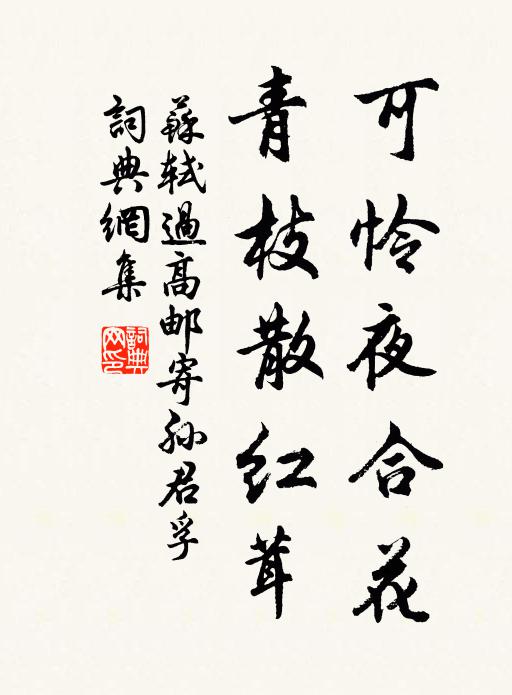 可怜夜合花
青枝散红茸
蘇軾過高邮寄孙君孚
詞典網集
詞典网印